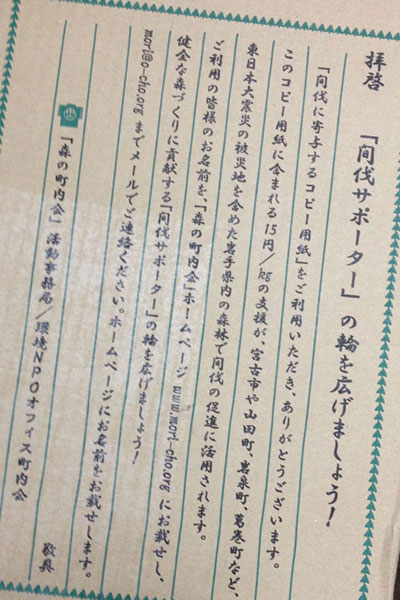 拝啓 「間伐サポーター」の輪を広げましょう！
「間伐に寄与するコピー用紙」をご利用いただき、ありがとうございます。
このコピー用紙に含まれる15円／kgの支援が、宮古市や山田町、岩泉町、葛巻町など、
東日本大震災の被災地を含めた岩手県内の森林で間伐の促進に活用されます。
ご利用の皆様のお名前を、「森の町内会」ホームページ www.mori-cho.org にお載せし、
健全な森づくりに貢献する「間伐サポーター」の輪を広げましょう！
mori@o-cho.org までメールでご連絡ください。ホームページにお名前をお載せします。
敬具
「森の町内会」活動事務局／環境NPOオフィス町内会